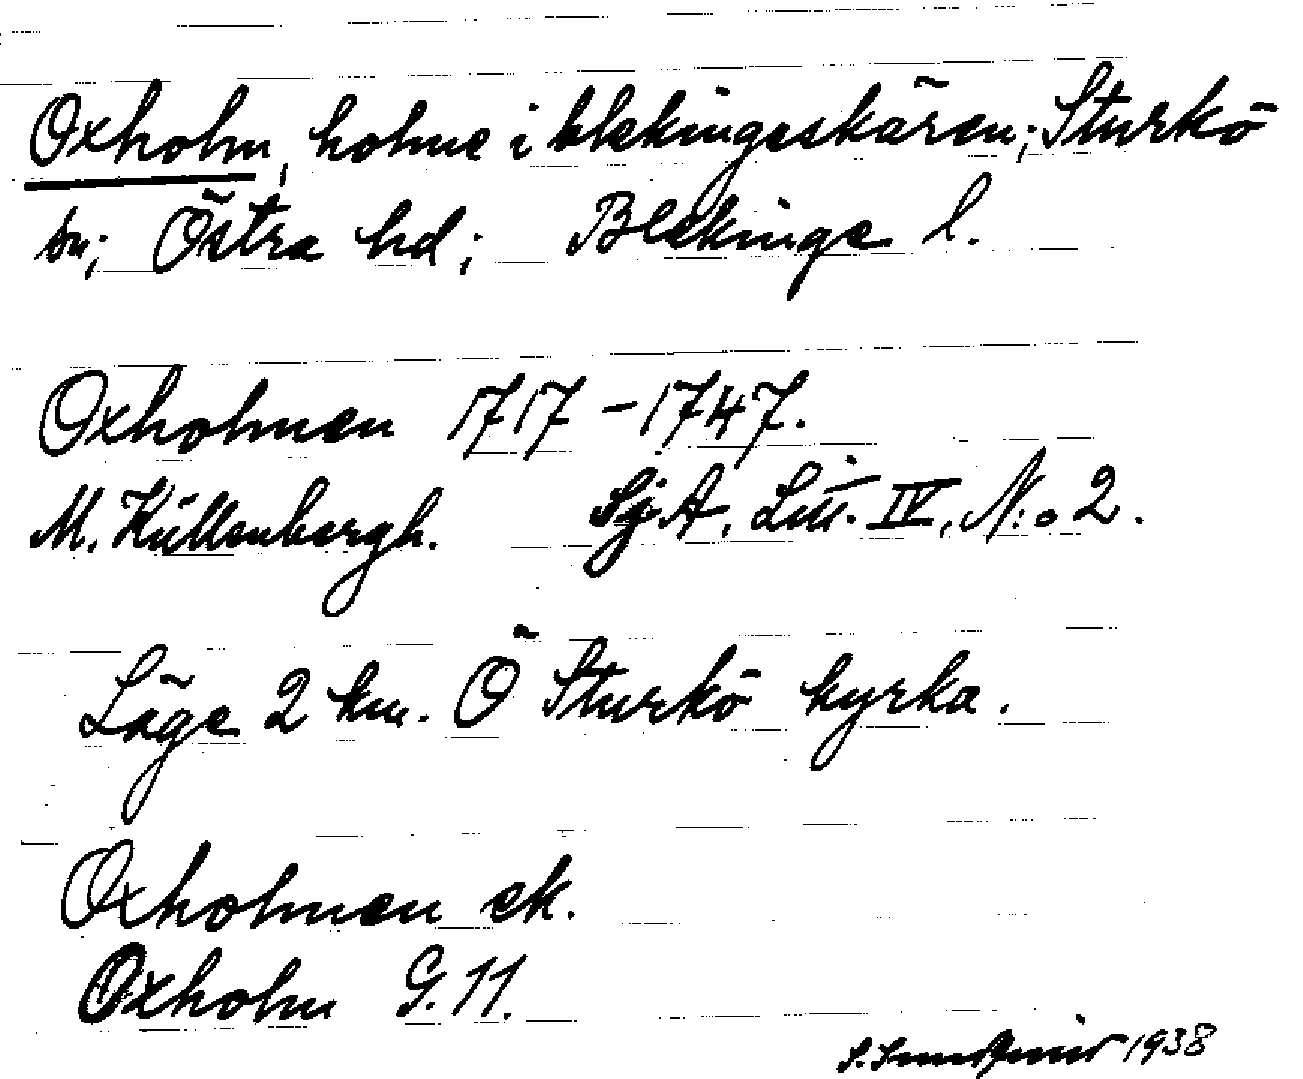 Oxholm, holme i blekingeskären; Sturkö
sn; Östra hd; Blekinge l.
Oxholmen 1717-1747.
M. Küllenbergh. Sj.A. Litt. IV, N:o 2.
Läge 2 km. Ö Sturkö kyrka.
Oxholmen ek.
Oxholm G. 11.
S. 1938